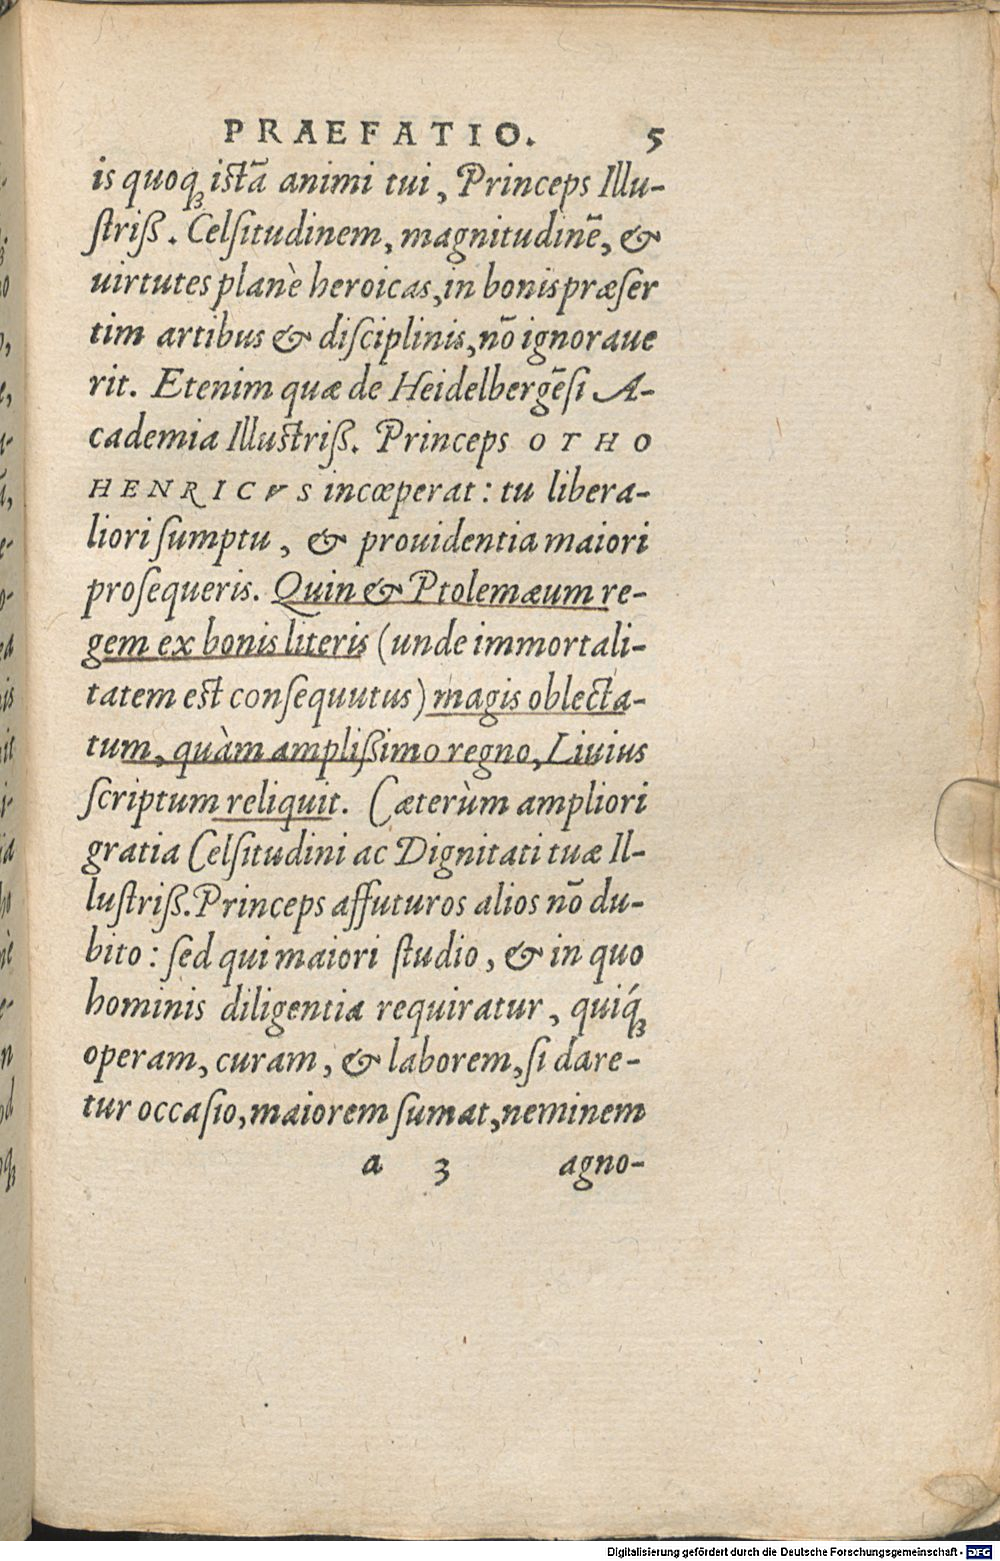 PRAEFATIO. 5
is quoqꝫ istã animi tui, Princeps Illu-
ſtriß. Celſitudinem, magnitudinẽ, &
uirtutes planè heroicas, in bonis præſer
tim artibus & diſciplinis, nõ ignoraue
rit. Etenim quæ de Heidelbergẽſi A-
cademia Illustriß. Princeps OTHO
HENRICVS incœperat: tu libera-
liori ſumptu, & prouidentia maiori
proſequeris. Quin & Ptolemæum re-
gem ex bonis literis (unde immortali-
tatem est conſequutus) magis oblecta-
tum, quàm amplißimo regno, Liuius
ſcriptum reliquit. Cæterùm ampliori
gratia Celſitudini ac Dignitati tuæ Il-
luſtriß. Princeps affuturos alios nõ du-
bito: ſed qui maiori ſtudio, & in quo
hominis diligentia requiratur, quiq́ꝫ
operam, curam, & laborem, ſi dare-
tur occaſio, maiorem ſumat, neminem
a 3 agno-
Digitalisierung gefördert durch die Deutsche Forschungsgemeinschaft - DFG